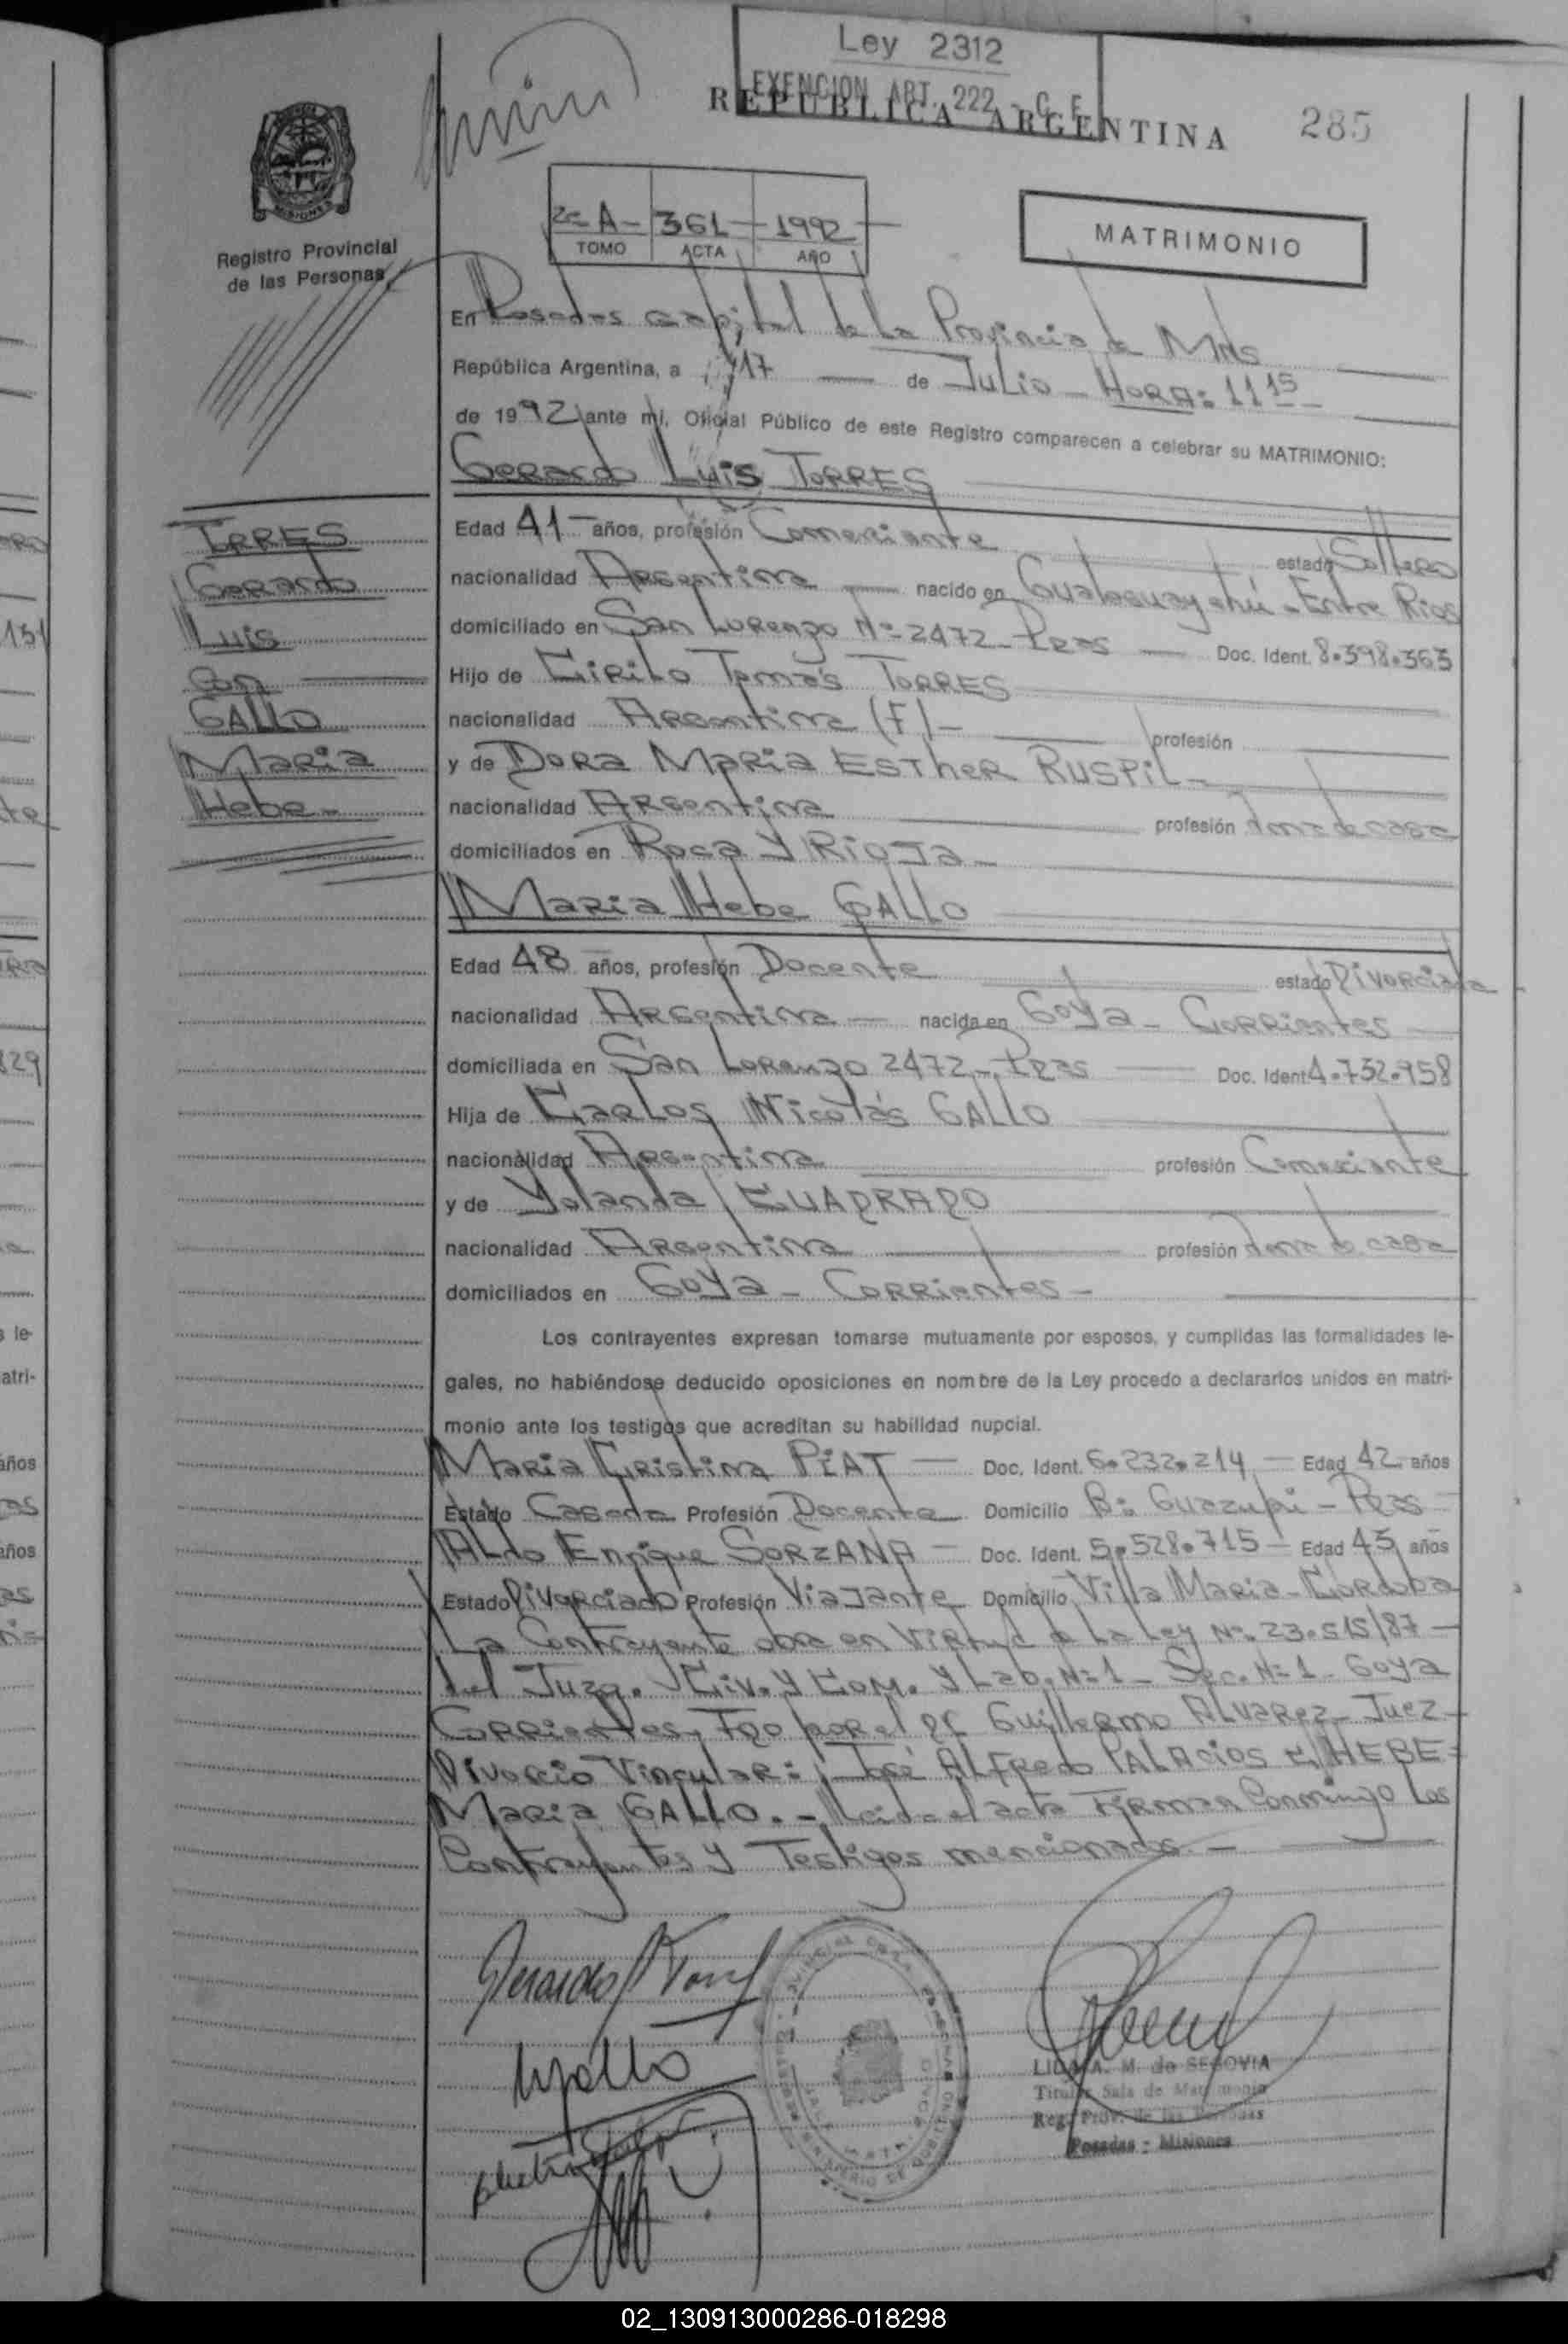 Ley 2312
EXENCION ART. 222 - C. F.
REPUBLICA ARGENTINA
285
MISIONES
Registro Provincial
de las Personas
2º A - 361 - 1992
TOMO ACTA AÑO
MATRIMONIO
En Posadas capital de la Provincia de Mnes
República Argentina, a 17 de Julio - HORA: 11 15
de 1992 ante mí, Oficial Público de este Registro comparecen a celebrar su MATRIMONIO:
Gerardo Luis TORRES
TRRES
Gerardo
Luis
con
GALLO
Maria
Hebe -
Edad 41 años, profesión Comerciante estado Soltero
nacionalidad Argentina nacido en Gualeguaychú - Entre Rios
domiciliado en San Lorenzo Nº 2472 - Pdas Doc. Ident. 8.398.363
Hijo de Cirilo Tomás TORRES
nacionalidad Argentina (F) - profesión
y de Dora Maria Esther RUSPIL -
nacionalidad Argentina profesión Ama de casa
domiciliados en Roca y Rioja -
Maria Hebe GALLO
Edad 48 años, profesión Docente estado Divorciada
nacionalidad Argentina nacida en Goya - Corrientes
domiciliada en San Lorenzo 2472 - Pdas Doc. Ident 4.732.958
Hija de Carlos Nicolás GALLO
nacionalidad Argentina profesión Comerciante
y de Yolanda CUADRADO
nacionalidad Argentina profesión Ama de casa
domiciliados en Goya - Corrientes -
Los contrayentes expresan tomarse mutuamente por esposos, y cumplidas las formalidades le-
gales, no habiéndose deducido oposiciones en nombre de la Ley procedo a declararlos unidos en matri-
monio ante los testigos que acreditan su habilidad nupcial.
Maria Cristina PIAT Doc. Ident. 6.232.214 Edad 42 años
Estado Casada Profesión Docente Domicilio Bº Guazupi - Pdas
Aldo Enrique SORZANA Doc. Ident. 5.528.715 Edad 43 años
Estado Divorciado Profesión Viajante Domicilio Villa Maria - Cordoba
La Contrayente obra en virtud de la Ley Nº 23.515/87 -
del Juzg. Civ. y Com. y Lab. Nº 1 - Sec. Nº 1 - Goya
Corrientes, Fdo por el Dr Guillermo Alvarez - Juez -
Divorcio Vincular: José Alfredo PALACIOS c/ HEBE
Maria GALLO. - Leida el acta Firman Conmingo los
Contrayentes y Testigos mencionados. -
LIDIA A. M. de SEGOVIA
Titular Sala de Matrimonio
Reg. Prov. de las Personas
Posadas - Misiones
02_130913000286-018298